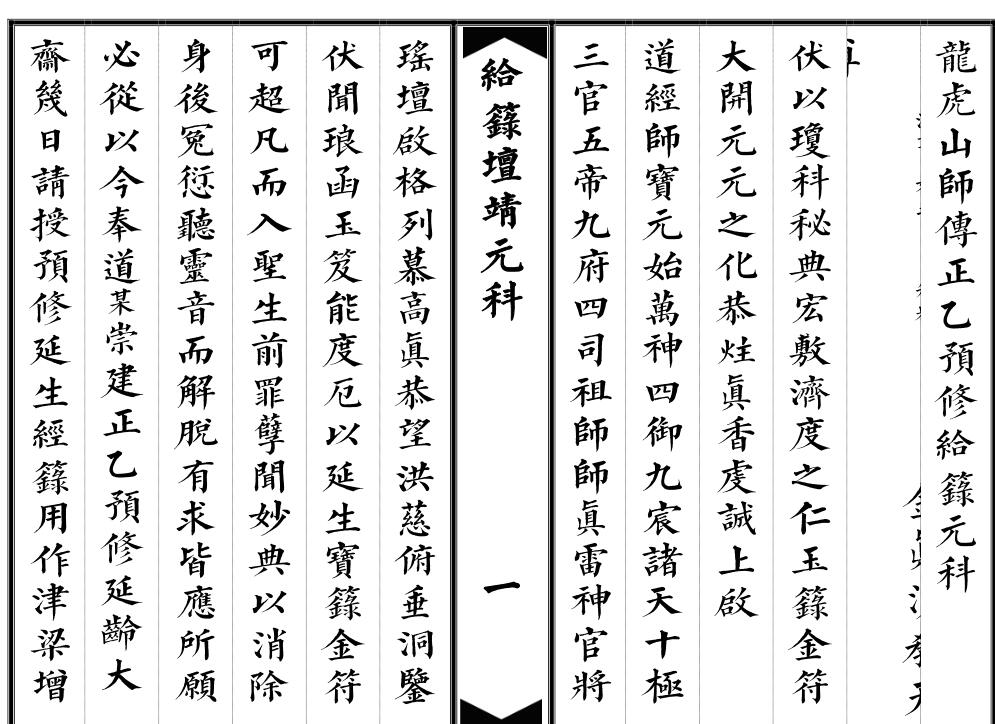 龍虎山師傳正乙預修給籙元科
伏以瓊科秘典宏敷濟度之仁玉籙金符
大開元元之化恭炷眞香虔誠上啟
道經師寶元始萬神四御九宸諸天十極
三官五帝九府四司祖師師眞雷神官將
給籙壇靖元科
一
瑤壇啟格列慕高眞恭望洪慈俯垂洞鑒
伏聞琅函玉笈能度厄以延生寶籙金符
可超凡而入聖生前罪孽聞妙典以消除
身後冤愆聽靈音而解脫有求皆應所願
必從以今奉道某崇建正乙預修延齡大
齋幾日請授預修延生經籙用作津梁增